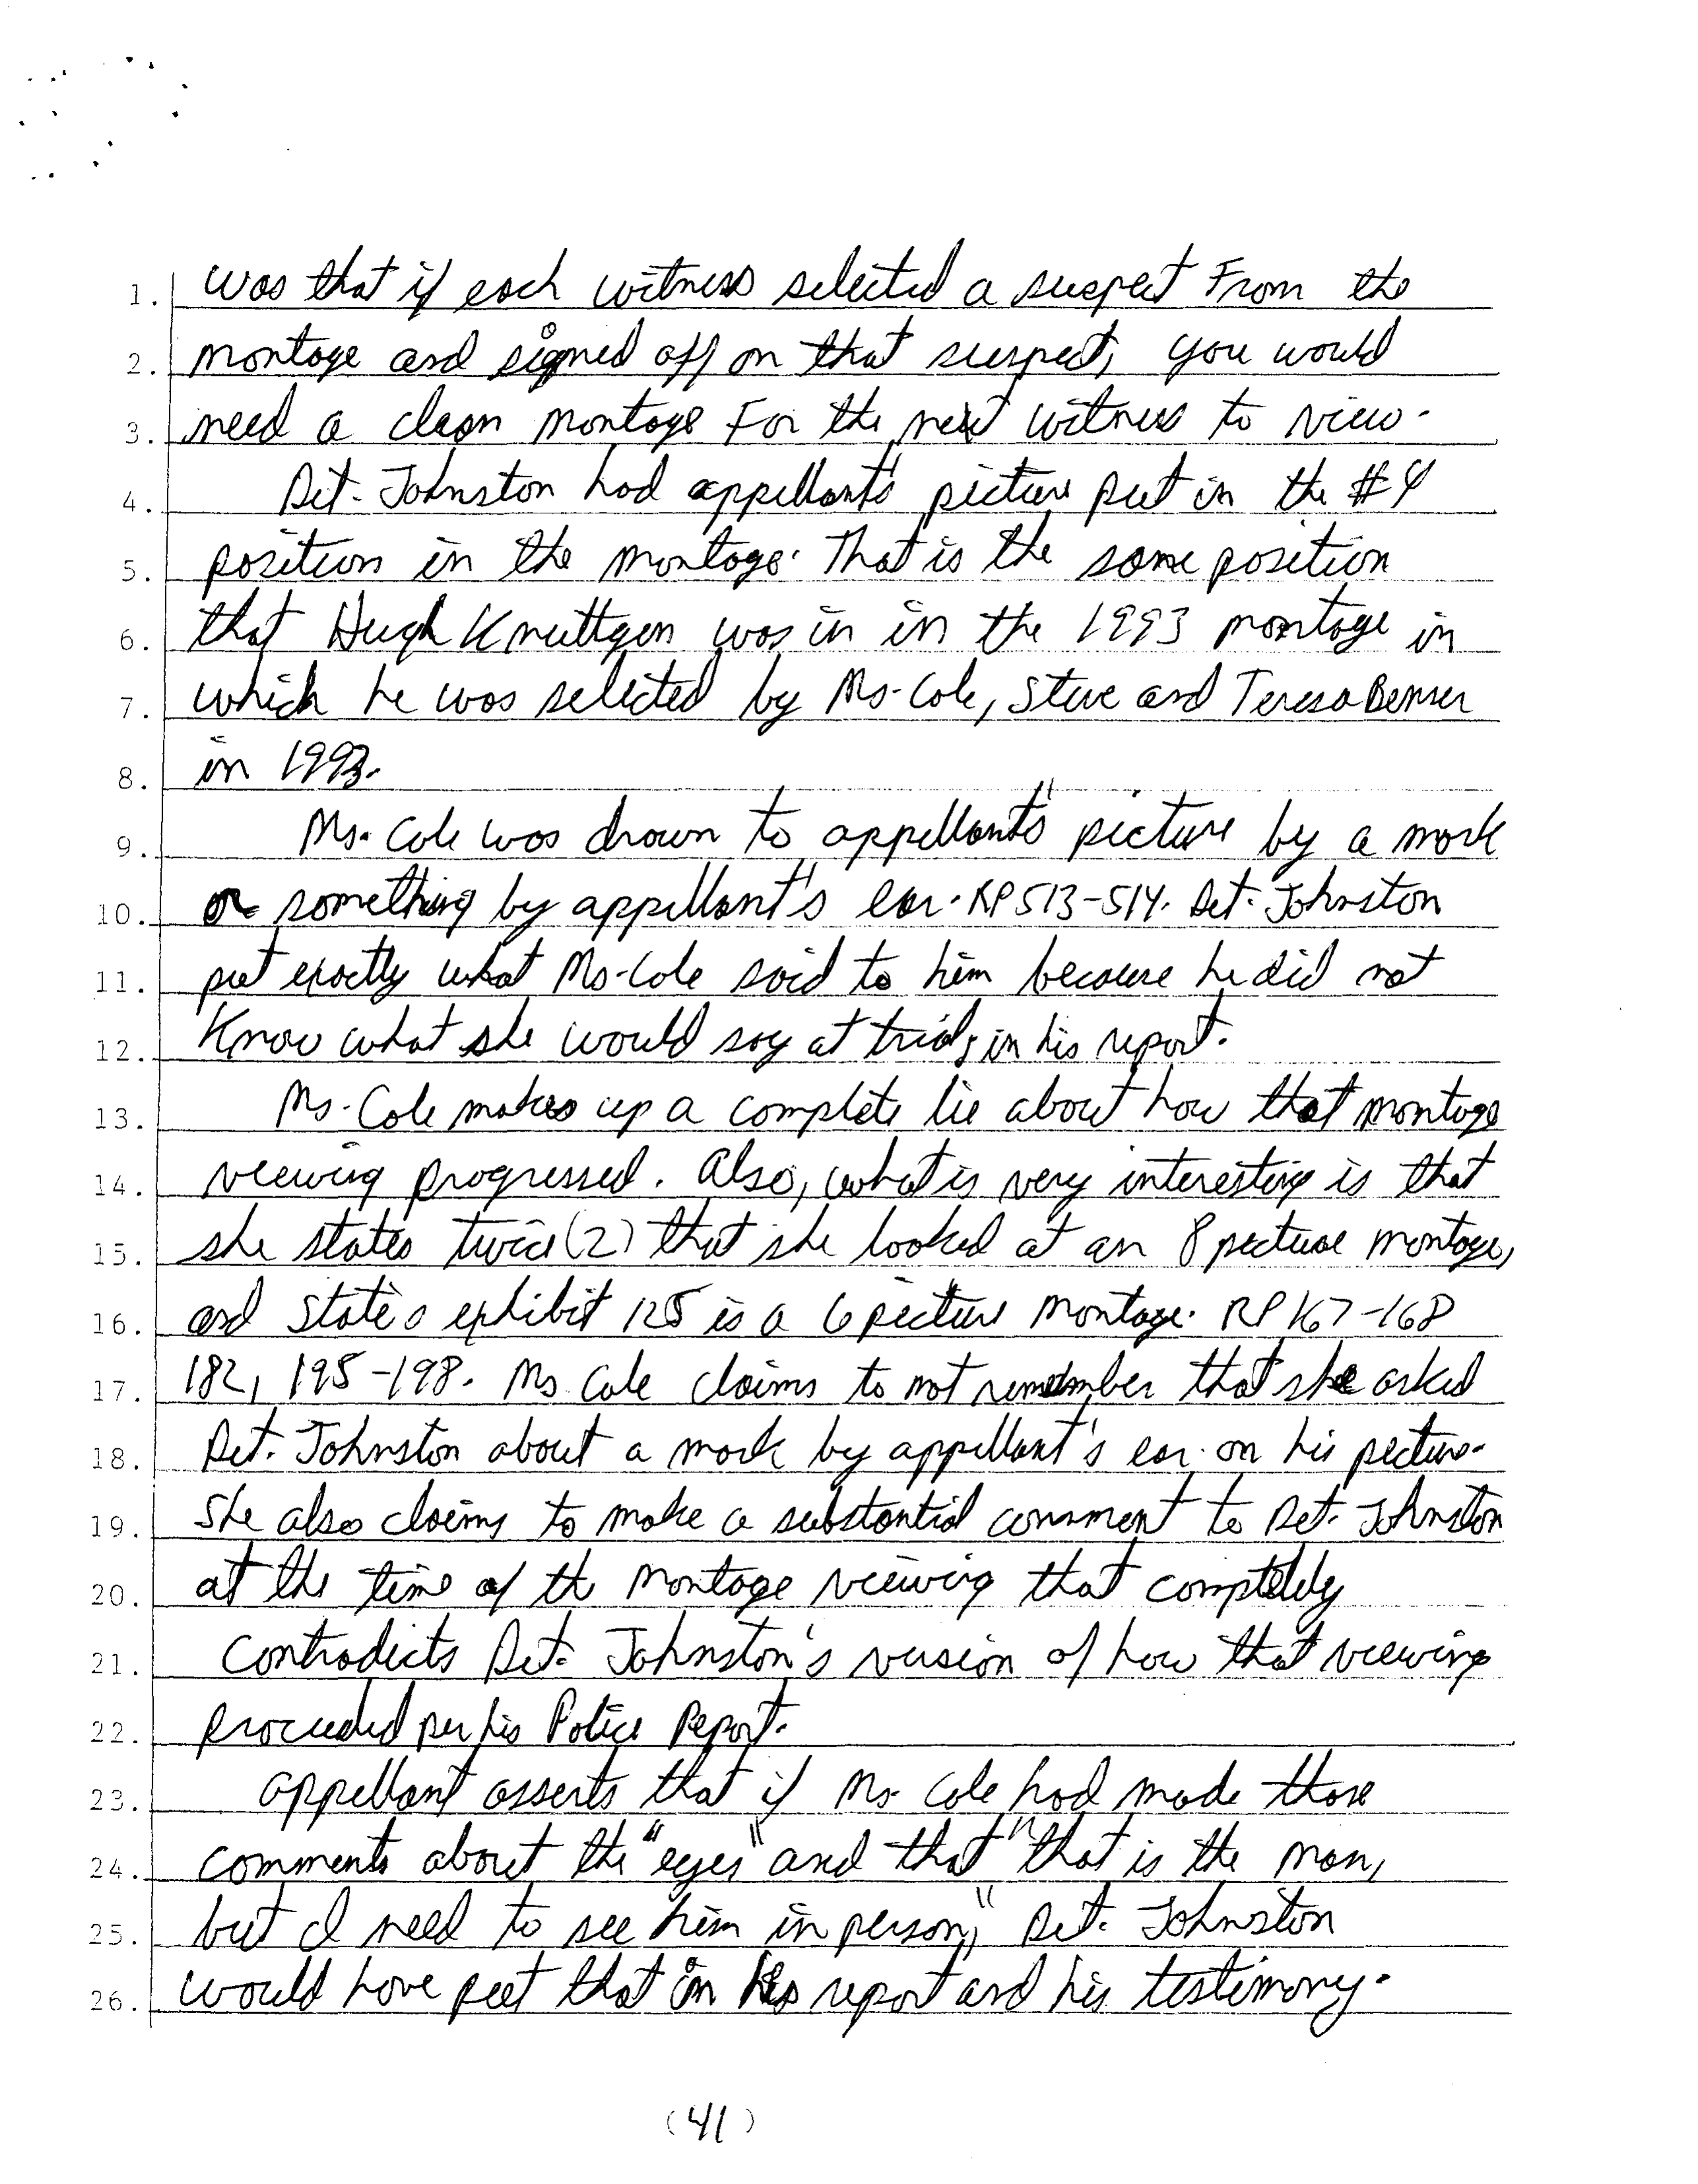 1. was that if each witness selected a suspect From the
2. montage and signed off on that suspect, you would
3. need a clean montage For the next witness to view.
4. Det. Johnston had appellant's picture put in the #4
5. position in the montage. That is the same position
6. that Hugh Knuttgen was in in the 1993 montage in
7. which he was selected by Ms. Cole, Steve and Teresa Benser
8. in 1993.
9. Ms. Cole was drawn to appellant's picture by a mark
10. or something by appellant's ear. RP 513-514. Det. Johnston
11. put exactly what Ms. Cole said to him because he did not
12. Know what she would say at trial, in his report.
13. Ms. Cole makes up a complete lie about how that montage
14. viewing progressed. Also, what is very interesting is that
15. she states twice (2) that she looked at an 8 picture montage,
16. and State's exhibit 125 is a 6 picture montage. RP 167-168
17. 182, 195-198. Ms. Cole claims to not remember that she asked
18. Det. Johnston about a mark by appellant's ear on his picture.
19. She also claims to make a substantial comment to Det. Johnston
20. at the time of the montage viewing that completely
21. contradicts Det. Johnston's version of how that viewing
22. proceeded per his Police Report.
23. appellant asserts that if Ms. Cole had made those
24. comments about the "eyes" and that "that is the man,
25. but I need to see him in person," Det. Johnston
26. would have put that in his report and his testimony.
(41)